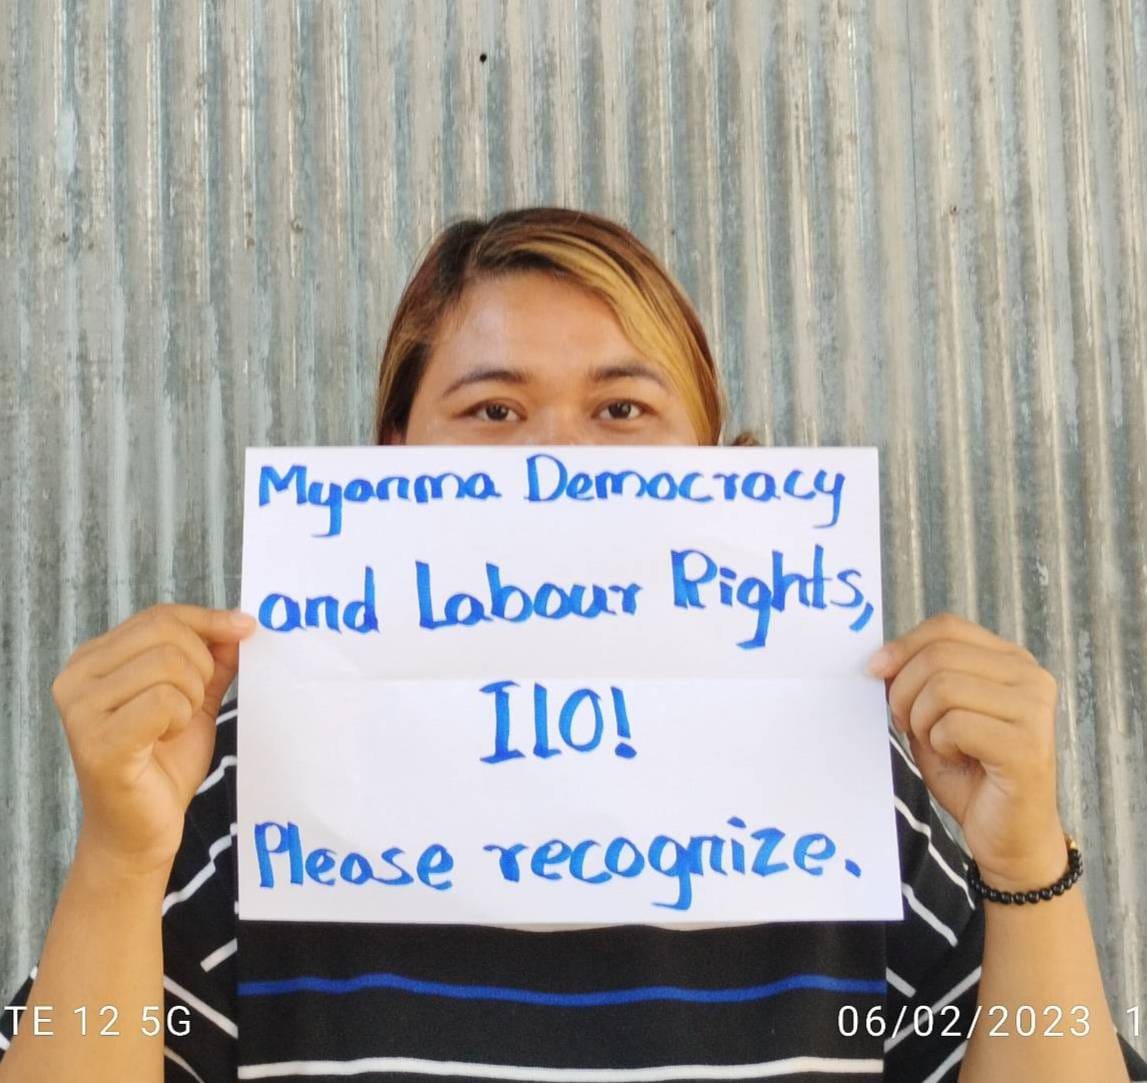 Myanma Democracy
and Labour Rights,
IlO!
Please recognize.
TE 12 5G
06/02/2023 1